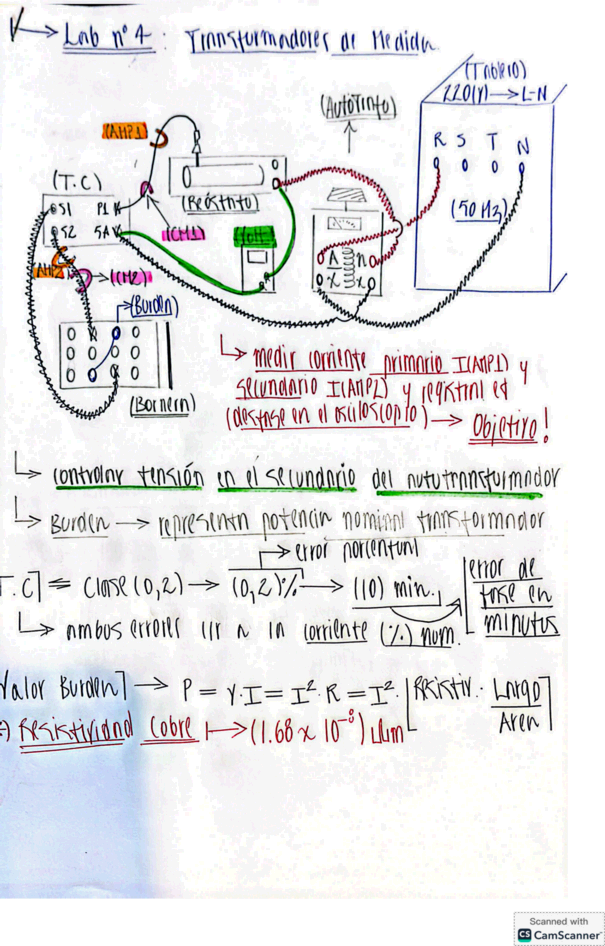 Lab n°4: Transformadores de Medida
(Tablero)
220(V) → L-N
(AutoTrafo)
R S T N
(AMP1)
(T.C)
(Reóstato)
S1 P1
S2 5A
(CM1)
(50 Hz)
AMP2
(CM2)
A
(Burden)
(Bornera)
↳ medir corriente primario I(AMP1) y
secundario I(AMP2) y registrar el
(desfase en el osciloscopio) → Objetivo!
↳ controlar tensión en el secundario del autotransformador
↳ Burden → representa potencia nominal transformador
→ error porcentual
T.C] = Clase (0,2) → (0,2)% → (10) min.
error de
fase en
minutos
↳ ambos errores la corriente (%) nom.
Valor Burden] → P = V·I = I²·R = I²·[Resistiv. · Largo
Area]
Resistividad Cobre ↦ (1.68 x 10⁻⁸) Ωm
Scanned with
CS CamScanner